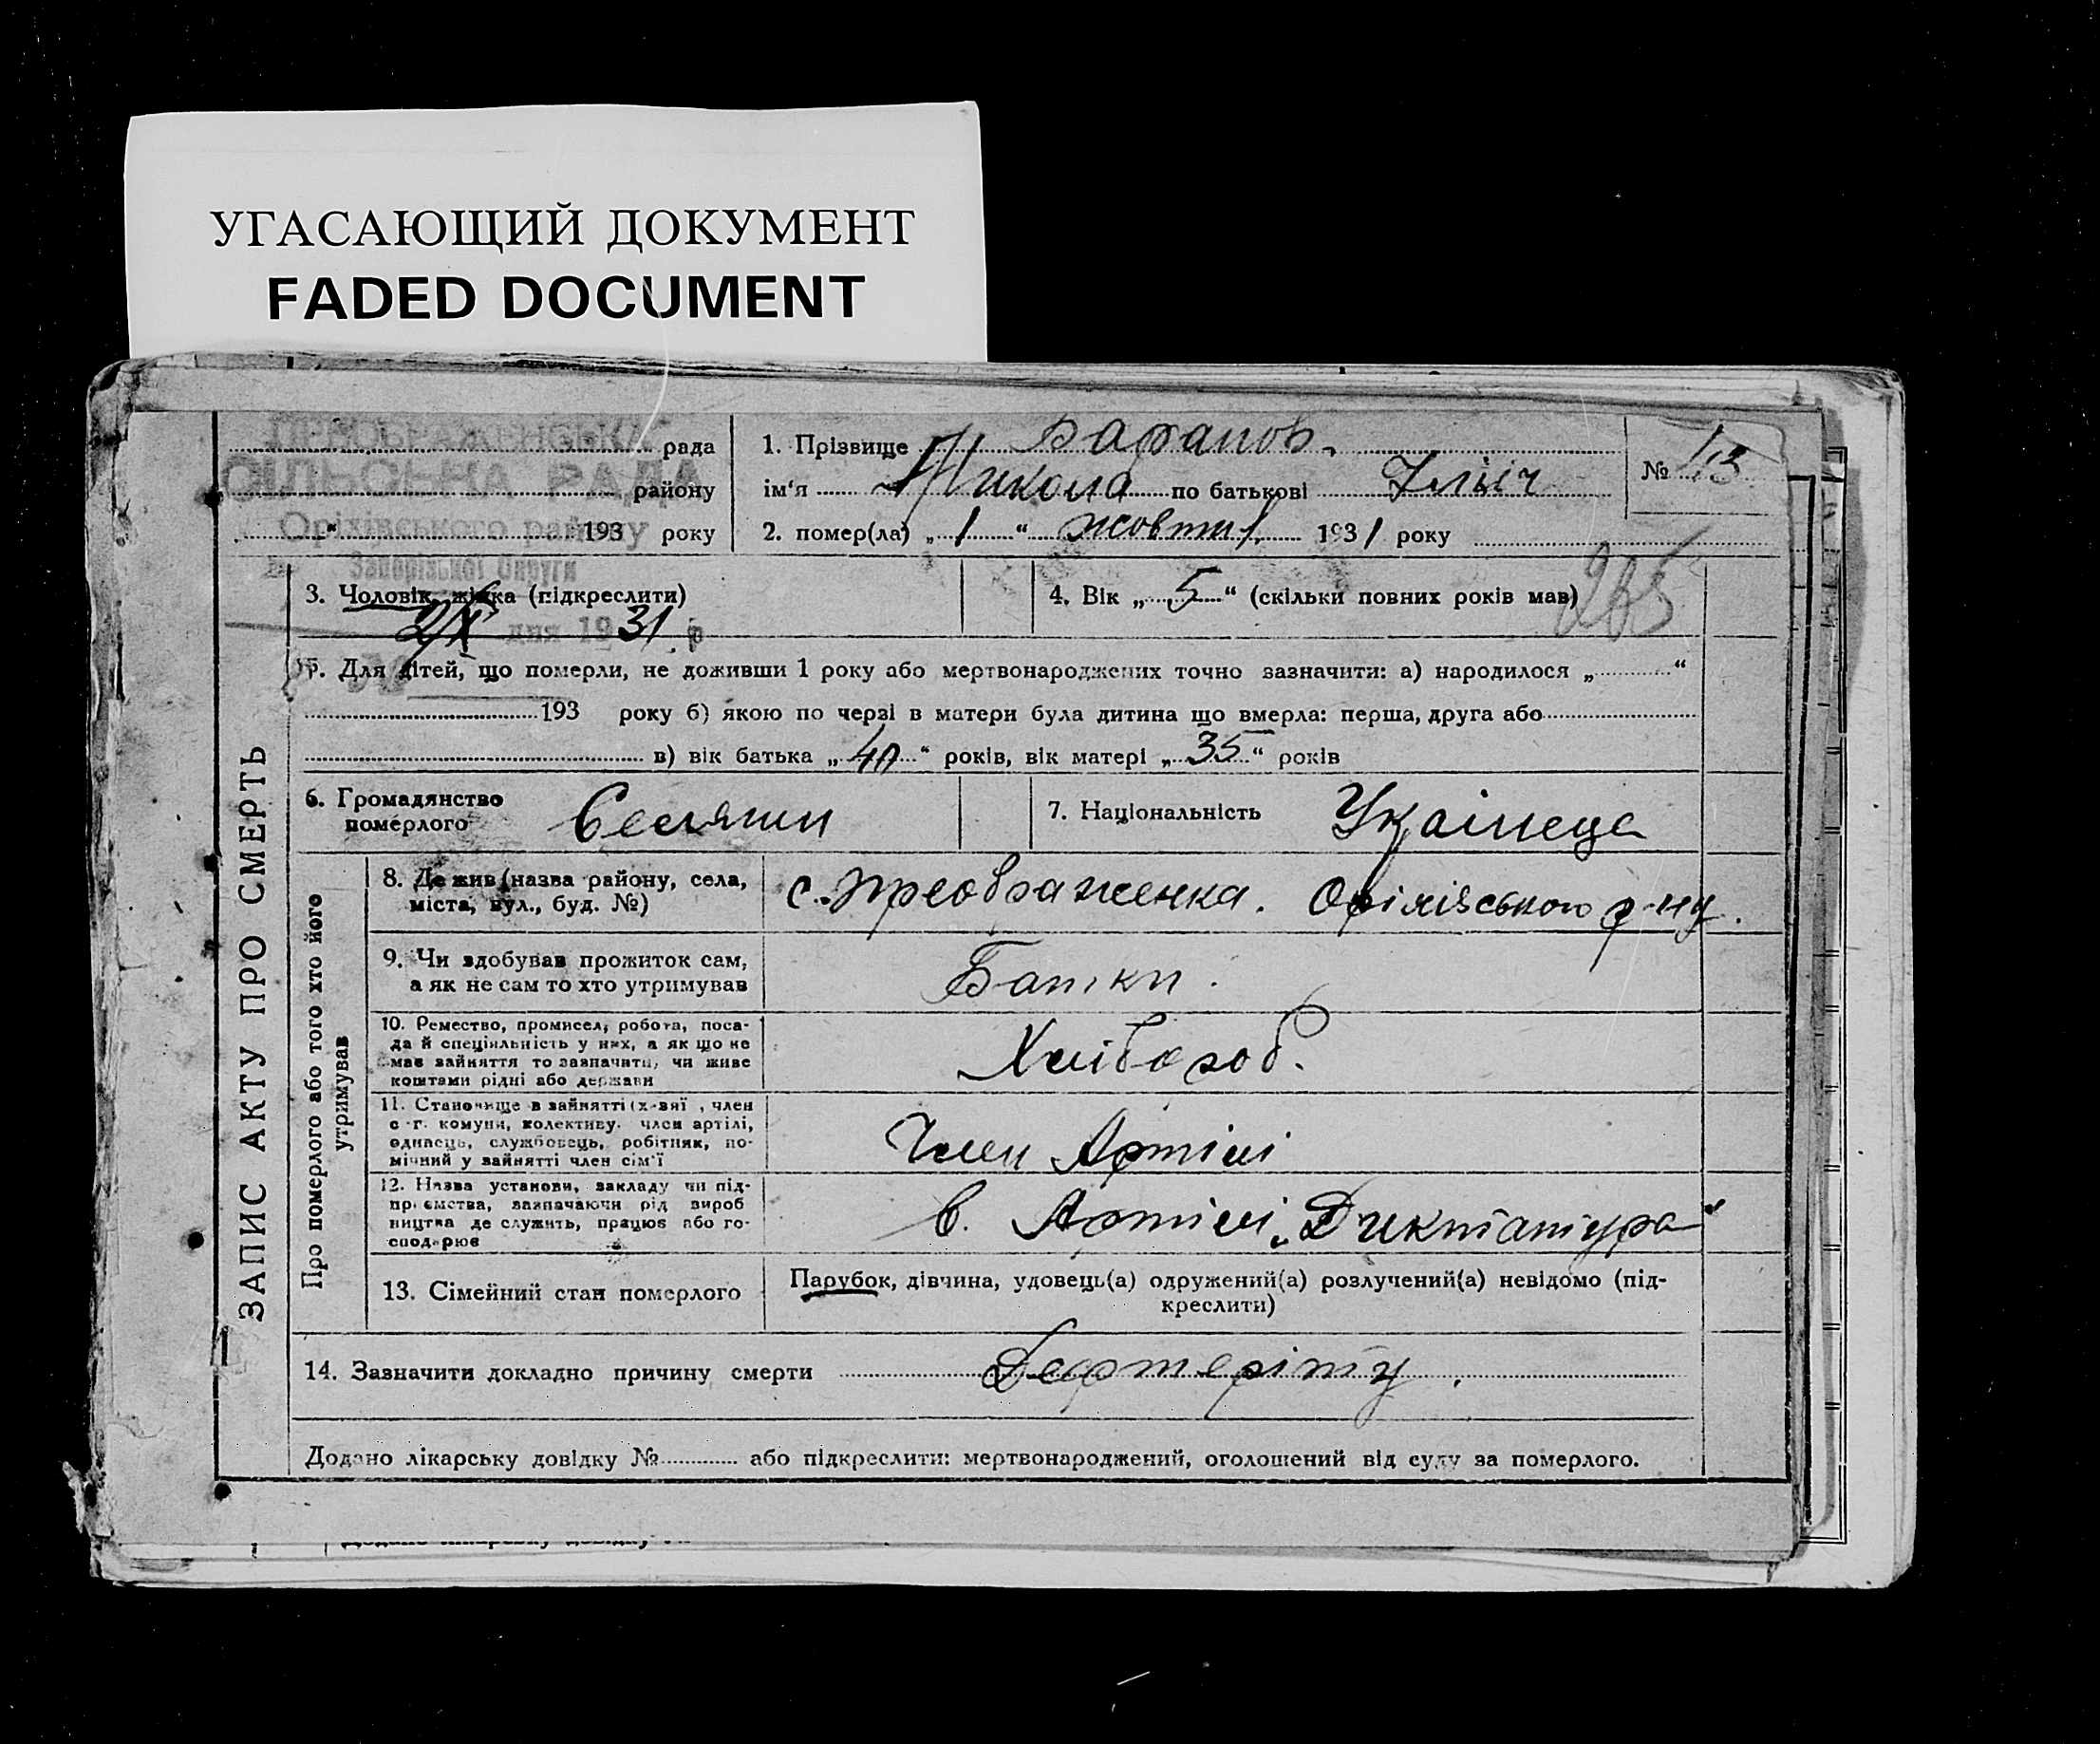 УГАСАЮЩИЙ ДОКУМЕНТ
FADED DOCUMENT
ПРЕОБРАЖЕНСЬКА рада
СІЛЬСЬКА РАДА району
Оріхівського району
" 193 року
Запорізької Округи
2/X дня 1931 р
1. Прізвище Баранов.
ім'я Микола по батькові Ілліч
№ 113
2. помер(ла) „1" жовтн 1931 року
3. Чоловік, жінка (підкреслити)
4. Вік „5" (скільки повних років мав)
265
5. Для дітей, що померли, не доживши 1 року або мертвонароджених точно зазначити: а) народилося „ "
193 року б) якою по черзі в матери була дитина що вмерла: перша, друга або
в) вік батька „40" років, вік матері „35" років
6. Громадянство
померлого Селянин
7. Національність Українець
ЗАПИС АКТУ ПРО СМЕРТЬ
Про померлого або того хто його
утримував
8. Де жив (назва району, села,
міста, вул., буд. №)
с. Преображенка. Оріхівського р-ну.
9. Чи здобував прожиток сам,
а як не сам то хто утримував
Батки.
10. Ремество, промисел, робота, поса-
да й спеціяльність у них, а як що не
має зайняття то зазначити, чи живе
коштами рідні або держави
Хлібороб.
11. Становище в зайнятті (х-вяї, член
с-г. комуни, колективу, член артілі,
одинець, службовець, робітник, по-
мічний у зайнятті член сім'ї
Член Артілі
12. Назва установи, закладу чи під-
приємства, зазначаючи рід вироб
ництва де служить, працює або го-
сподарює
в. Артілі „Диктатура"
13. Сімейний стан померлого
Парубок, дівчина, удовець(а) одружений(а) розлучений(а) невідомо (під-
креслити)
14. Зазначити докладно причину смерти Дефтеріту.
Додано лікарську довідку № або підкреслити: мертвонароджений, оголошений від суду за померлого.